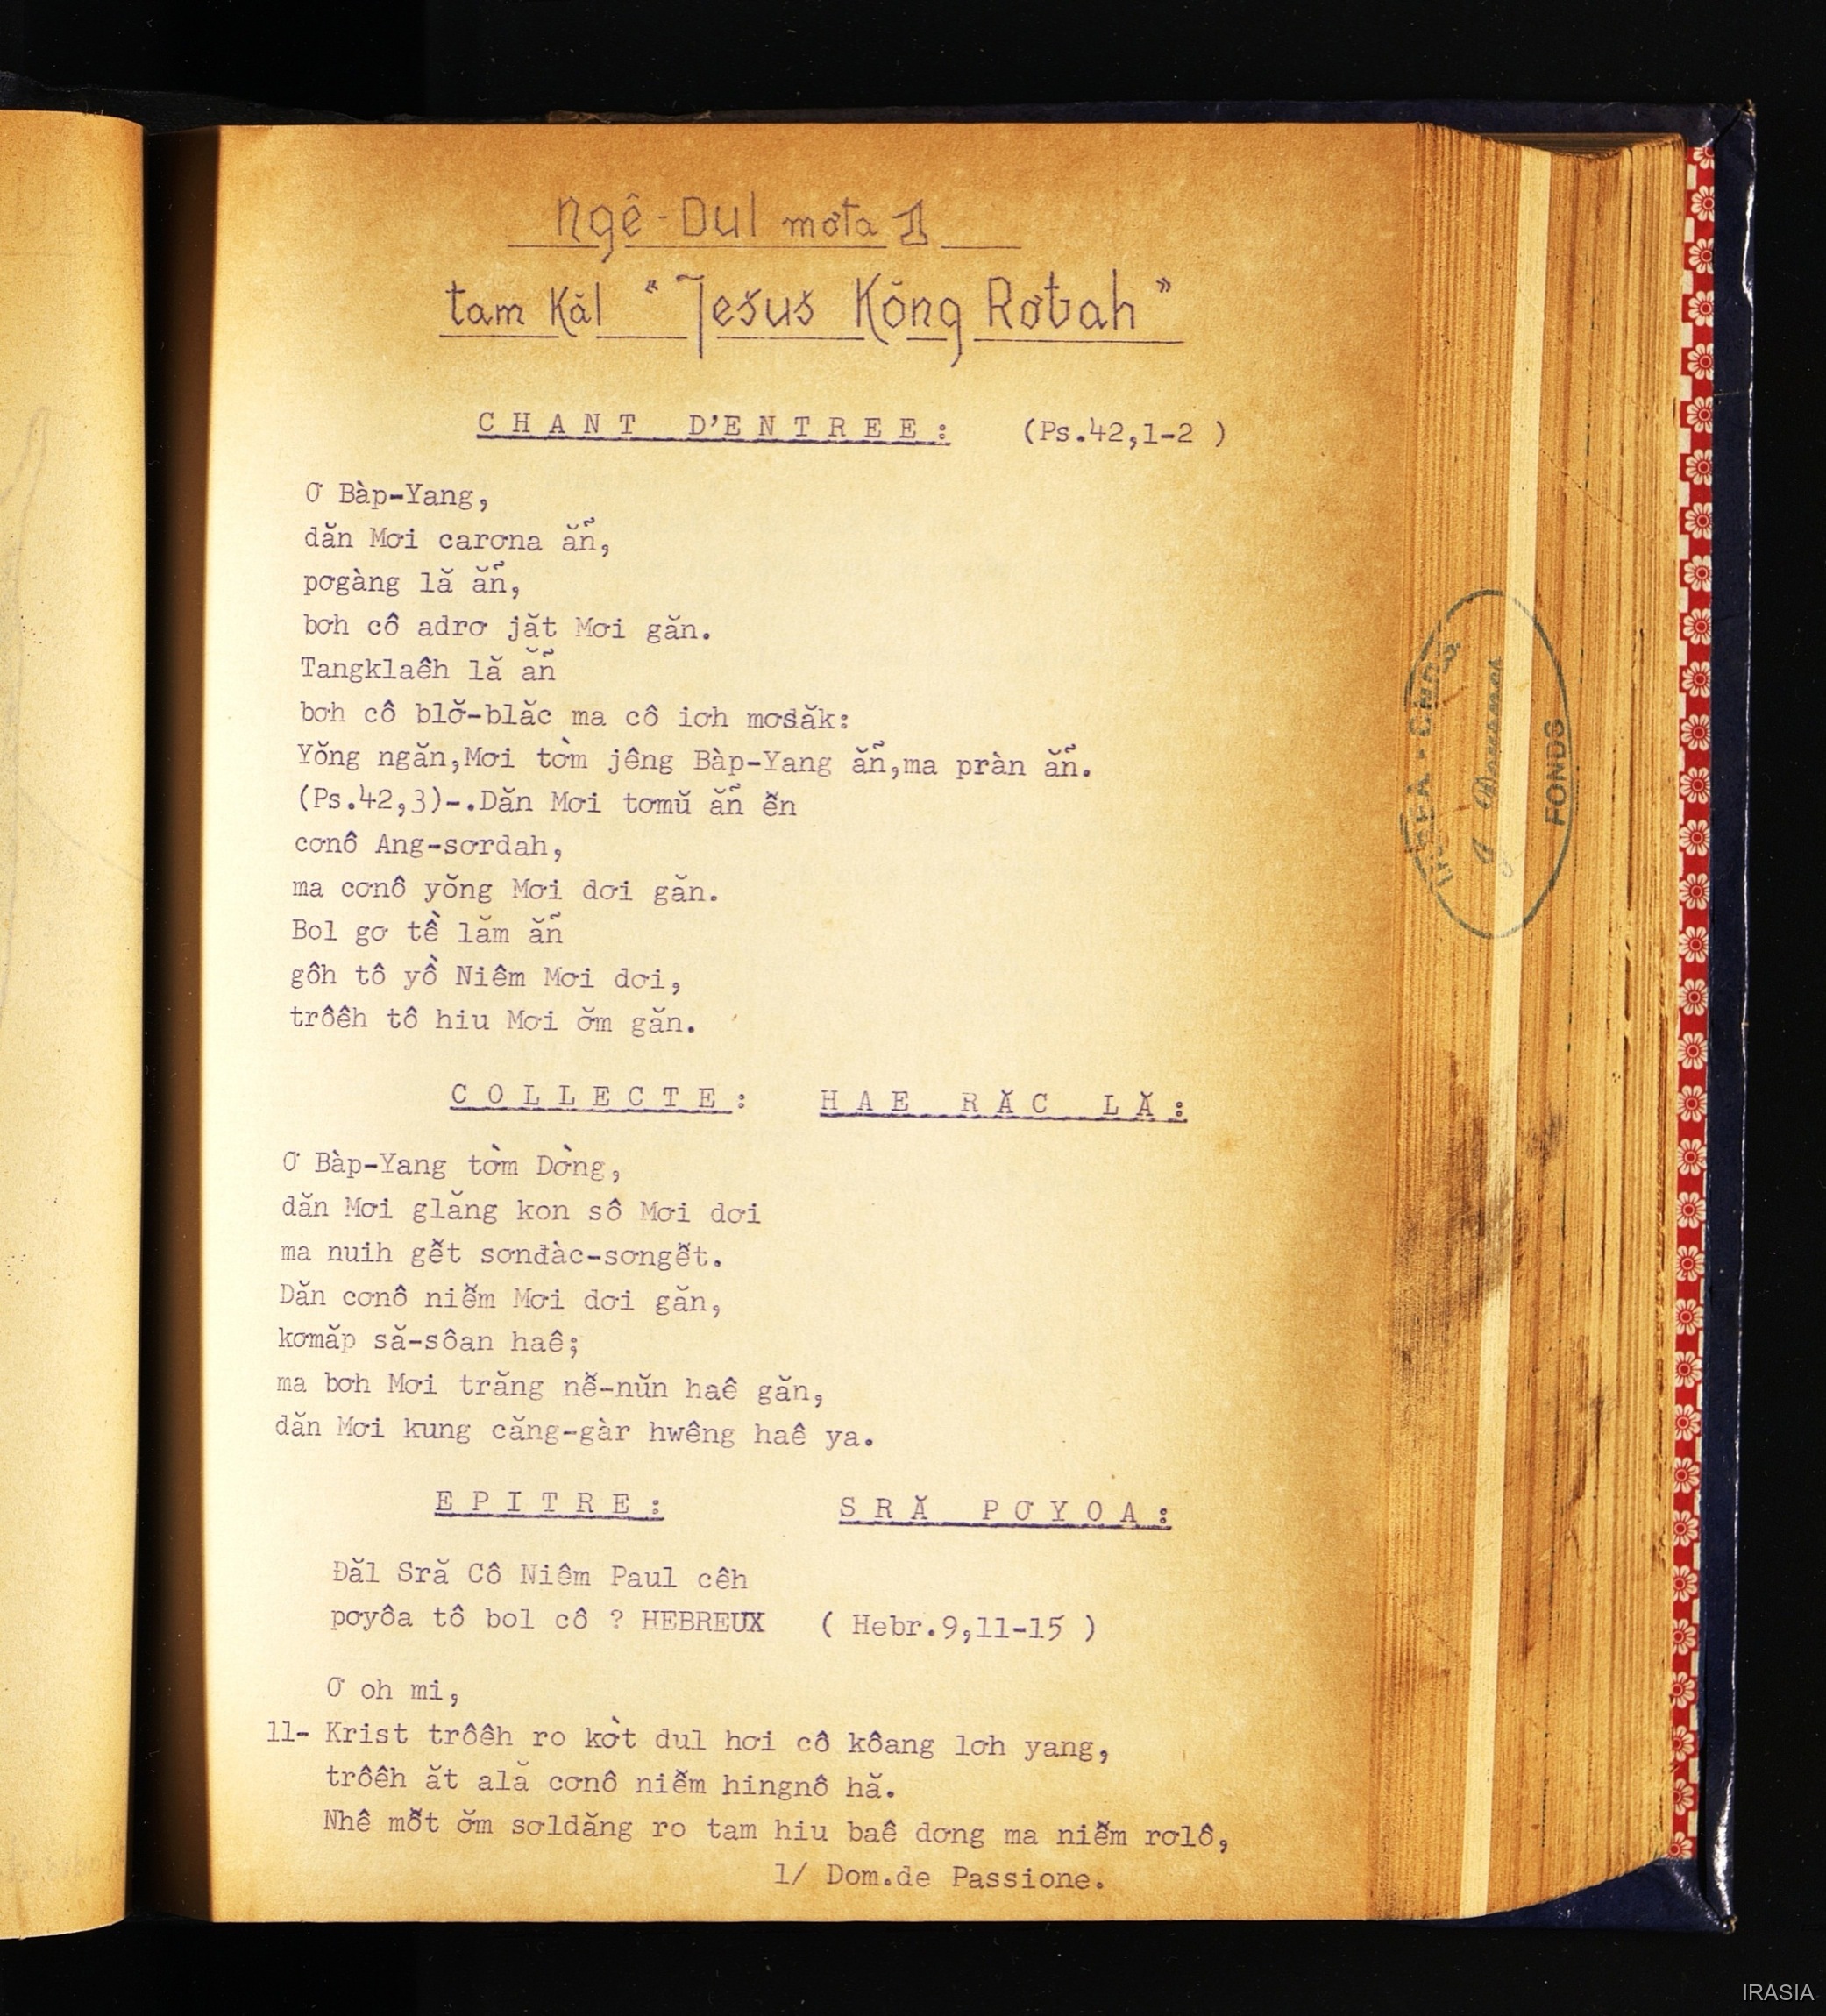 Ngê-Dul mơta 1
tam Kăl "Jesus Kŏng Rơƀah"
CHANT D'ENTREE: (Ps.42,1-2 )
Ơ Bàp-Yang,
dăn Mơi carơna ăñ,
pơgàng lă ăñ,
bơh cô adrơ jăt Mơi găn.
Tangklaêh lă ăñ
bơh cô blơ̆-blăc ma cô iơh mơsăk:
Yŏng ngăn,Mơi tờm jêng Bàp-Yang ăñ,ma pràn ăñ.
(Ps.42,3)-.Dăn Mơi tơmŭ ăñ ê̆n
cơnô Ang-sơrdah,
ma cơnô yŏng Mơi dơi găn.
Bol gơ tề lăm ăñ
gôh tô yồ Niêm Mơi dơi,
trôêh tô hiu Mơi ơ̆m găn.
COLLECTE: HAE RĂC LĂ:
Ơ Bàp-Yang tờm Dờng,
dăn Mơi glăng kon sô Mơi dơi
ma nuih gê̆t sơnđàc-sơngê̆t.
Dăn cơnô niê̆m Mơi dơi găn,
kơmăp să-sôan haê;
ma bơh Mơi trăng nê̆-nŭn haê găn,
dăn Mơi kung căng-gàr hwêng haê ya.
EPITRE: SRĂ PƠYOA:
Đăl Sră Cô Niêm Paul cêh
pơyôa tô bol cô ? HEBREUX ( Hebr.9,11-15 )
Ơ oh mi,
11- Krist trôêh ro kờt dul hơi cô kôang lơh yang,
trôêh ăt ală cơnô niê̆m hingnô hă.
Nhê mô̆t ơ̆m sơldăng ro tam hiu baê dơng ma niê̆m rơlô,
1/ Dom.de Passione.
FONDS
IRASIA